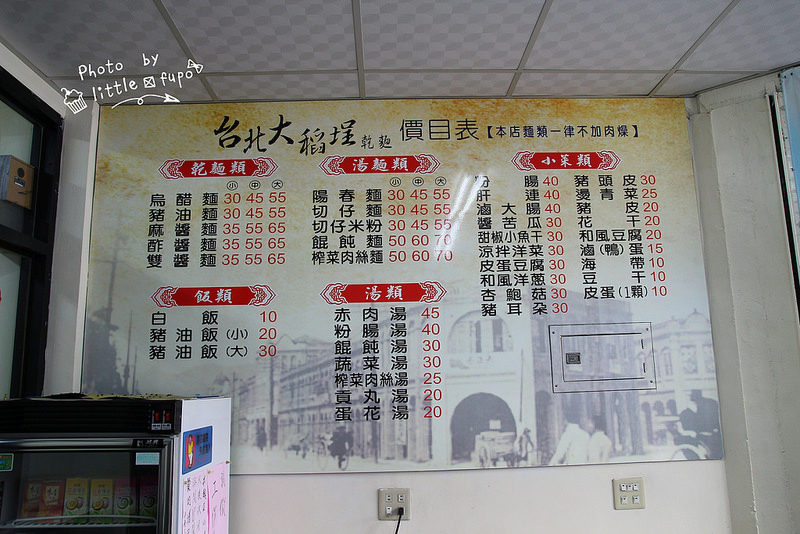 Photo by
little fupo
台北大稻埕乾麵 價目表【本店麵類一律不加肉燥】
乾麵類
小 中 大
烏醋麵 30 45 55
豬油麵 30 45 55
麻醬麵 35 55 65
酢醬麵 35 55 65
雙醬麵 35 55 65
湯麵類
小 中 大
陽春麵 30 45 55
切仔麵 30 45 55
切仔米粉 30 45 55
餛飩麵 50 60 70
榨菜肉絲麵 50 60 70
小菜類
粉腸 40
肝連 40
滷大腸 40
醬苦瓜 30
甜椒小魚干 30
涼拌洋菜 30
皮蛋豆腐 30
和風洋蔥 30
杏鮑菇 30
豬耳朵 30
豬頭皮 30
燙青菜 25
豬皮 20
花干 20
和風豆腐 20
滷(鴨)蛋 15
海帶 10
豆干 10
皮蛋(1顆) 10
飯類
白飯 10
豬油飯(小) 20
豬油飯(大) 30
湯類
赤肉湯 45
粉腸湯 40
餛飩湯 30
蔬菜湯 30
榨菜肉絲湯 25
貢丸湯 20
蛋花湯 20